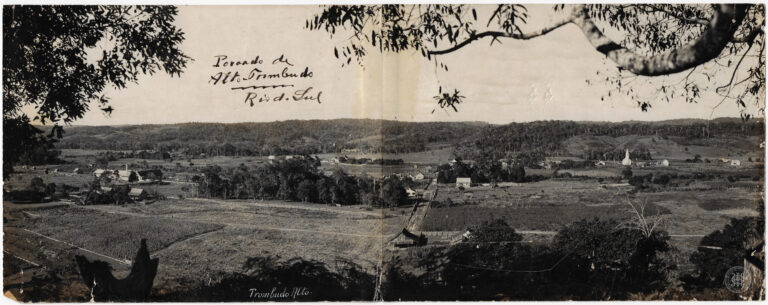 Povoado de
Alto Trombudo
Rio do Sul
Trombudo Alto